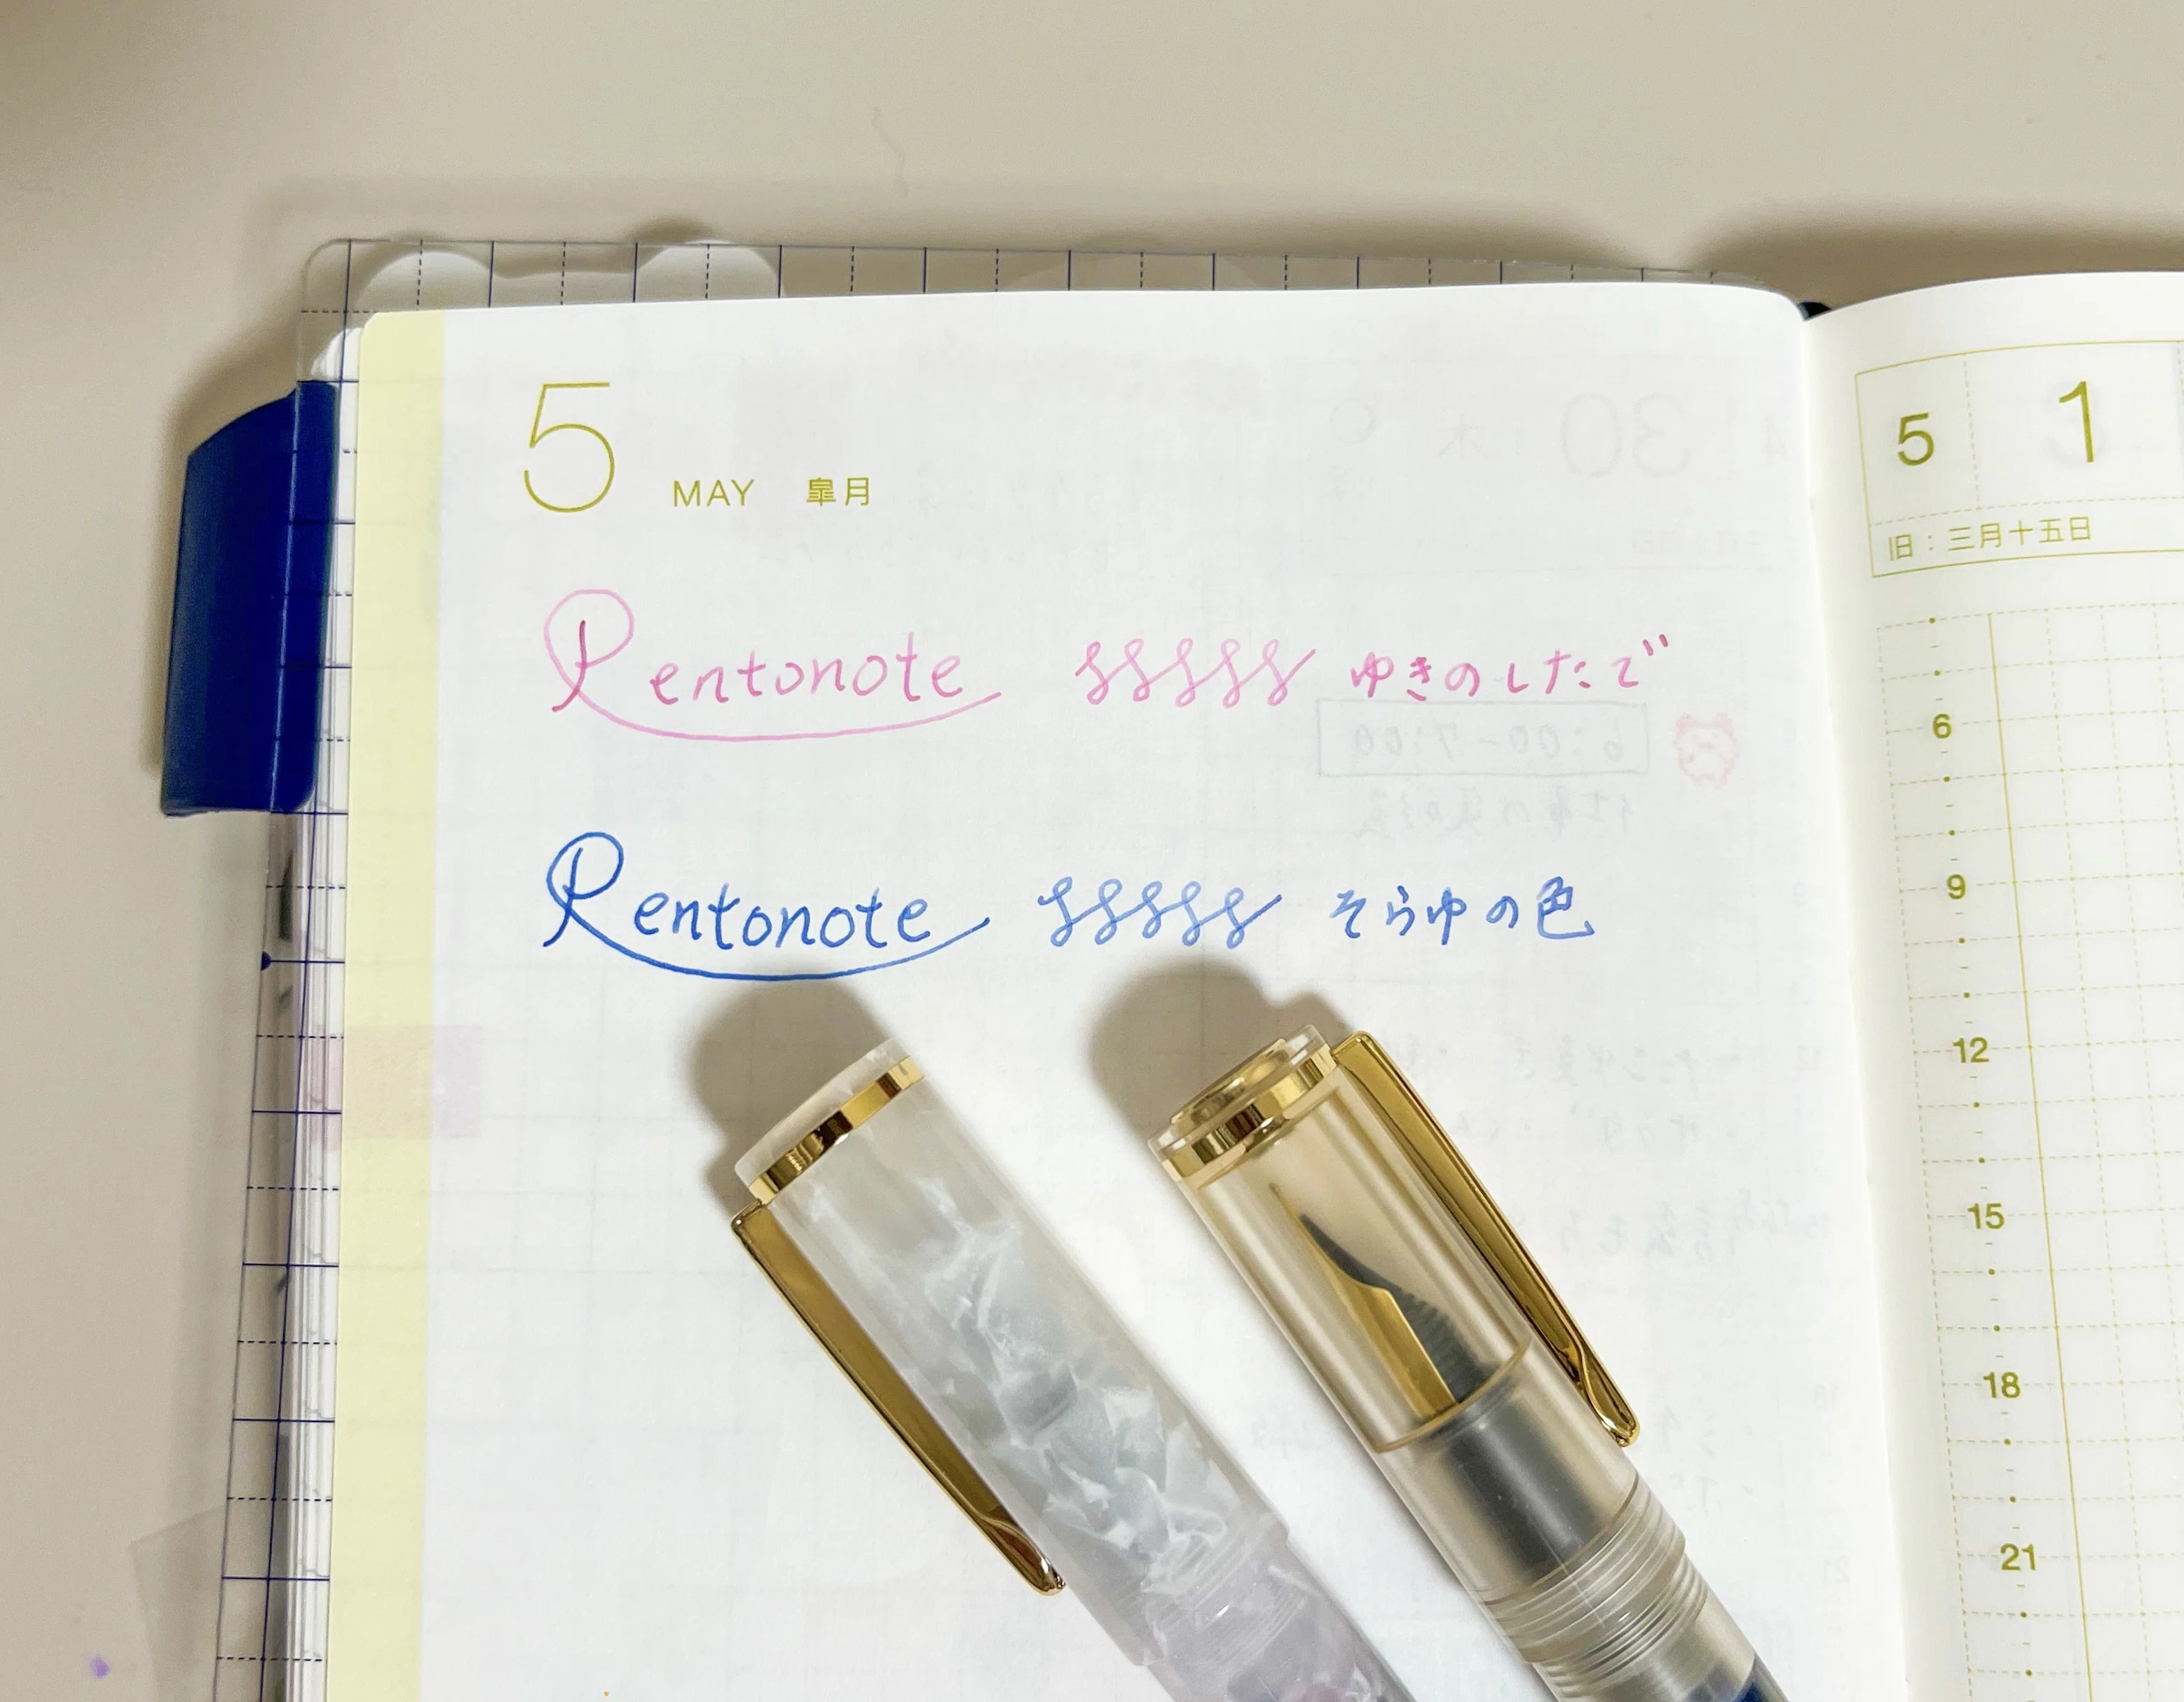 5 MAY 皐月
Rentonote ゆきのしたで
Rentonote そらゆの色
5 1
旧:三月十五日
6
9
12
15
18
21